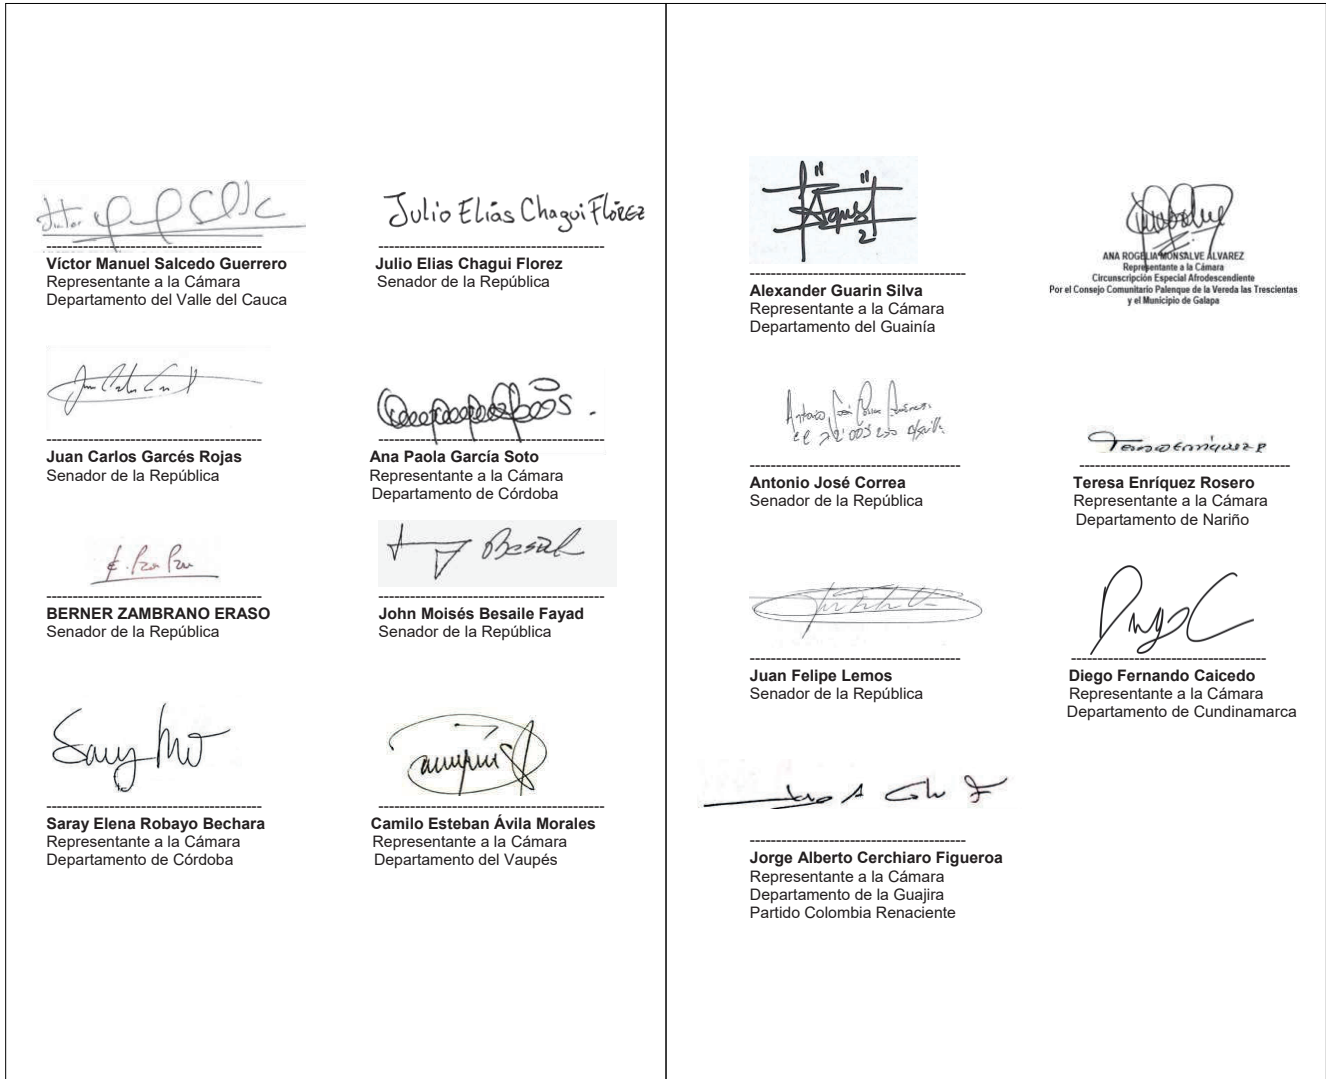 Julio Elías Chagui Flórez
Víctor Manuel Salcedo Guerrero
Representante a la Cámara
Departamento del Valle del Cauca
Julio Elias Chagui Florez
Senador de la República
Juan Carlos Garcés Rojas
Senador de la República
Ana Paola García Soto
Representante a la Cámara
Departamento de Córdoba
Besaile
BERNER ZAMBRANO ERASO
Senador de la República
John Moisés Besaile Fayad
Senador de la República
Saray Elena Robayo Bechara
Representante a la Cámara
Departamento de Córdoba
Camilo Esteban Ávila Morales
Representante a la Cámara
Departamento del Vaupés
Alexander Guarin Silva
Representante a la Cámara
Departamento del Guainía
ANA ROGELIA MONSALVE ÁLVAREZ
Representante a la Cámara
Circunscripción Especial Afrodescendiente
Por el Consejo Comunitario Palenque de la Vereda las Trescientas
y el Municipio de Galapa
Antonio José Correa
Senador de la República
Teresa Enríquez R
Teresa Enríquez Rosero
Representante a la Cámara
Departamento de Nariño
Juan Felipe Lemos
Senador de la República
Diego C
Diego Fernando Caicedo
Representante a la Cámara
Departamento de Cundinamarca
Jorge Alberto Cerchiaro Figueroa
Representante a la Cámara
Departamento de la Guajira
Partido Colombia Renaciente